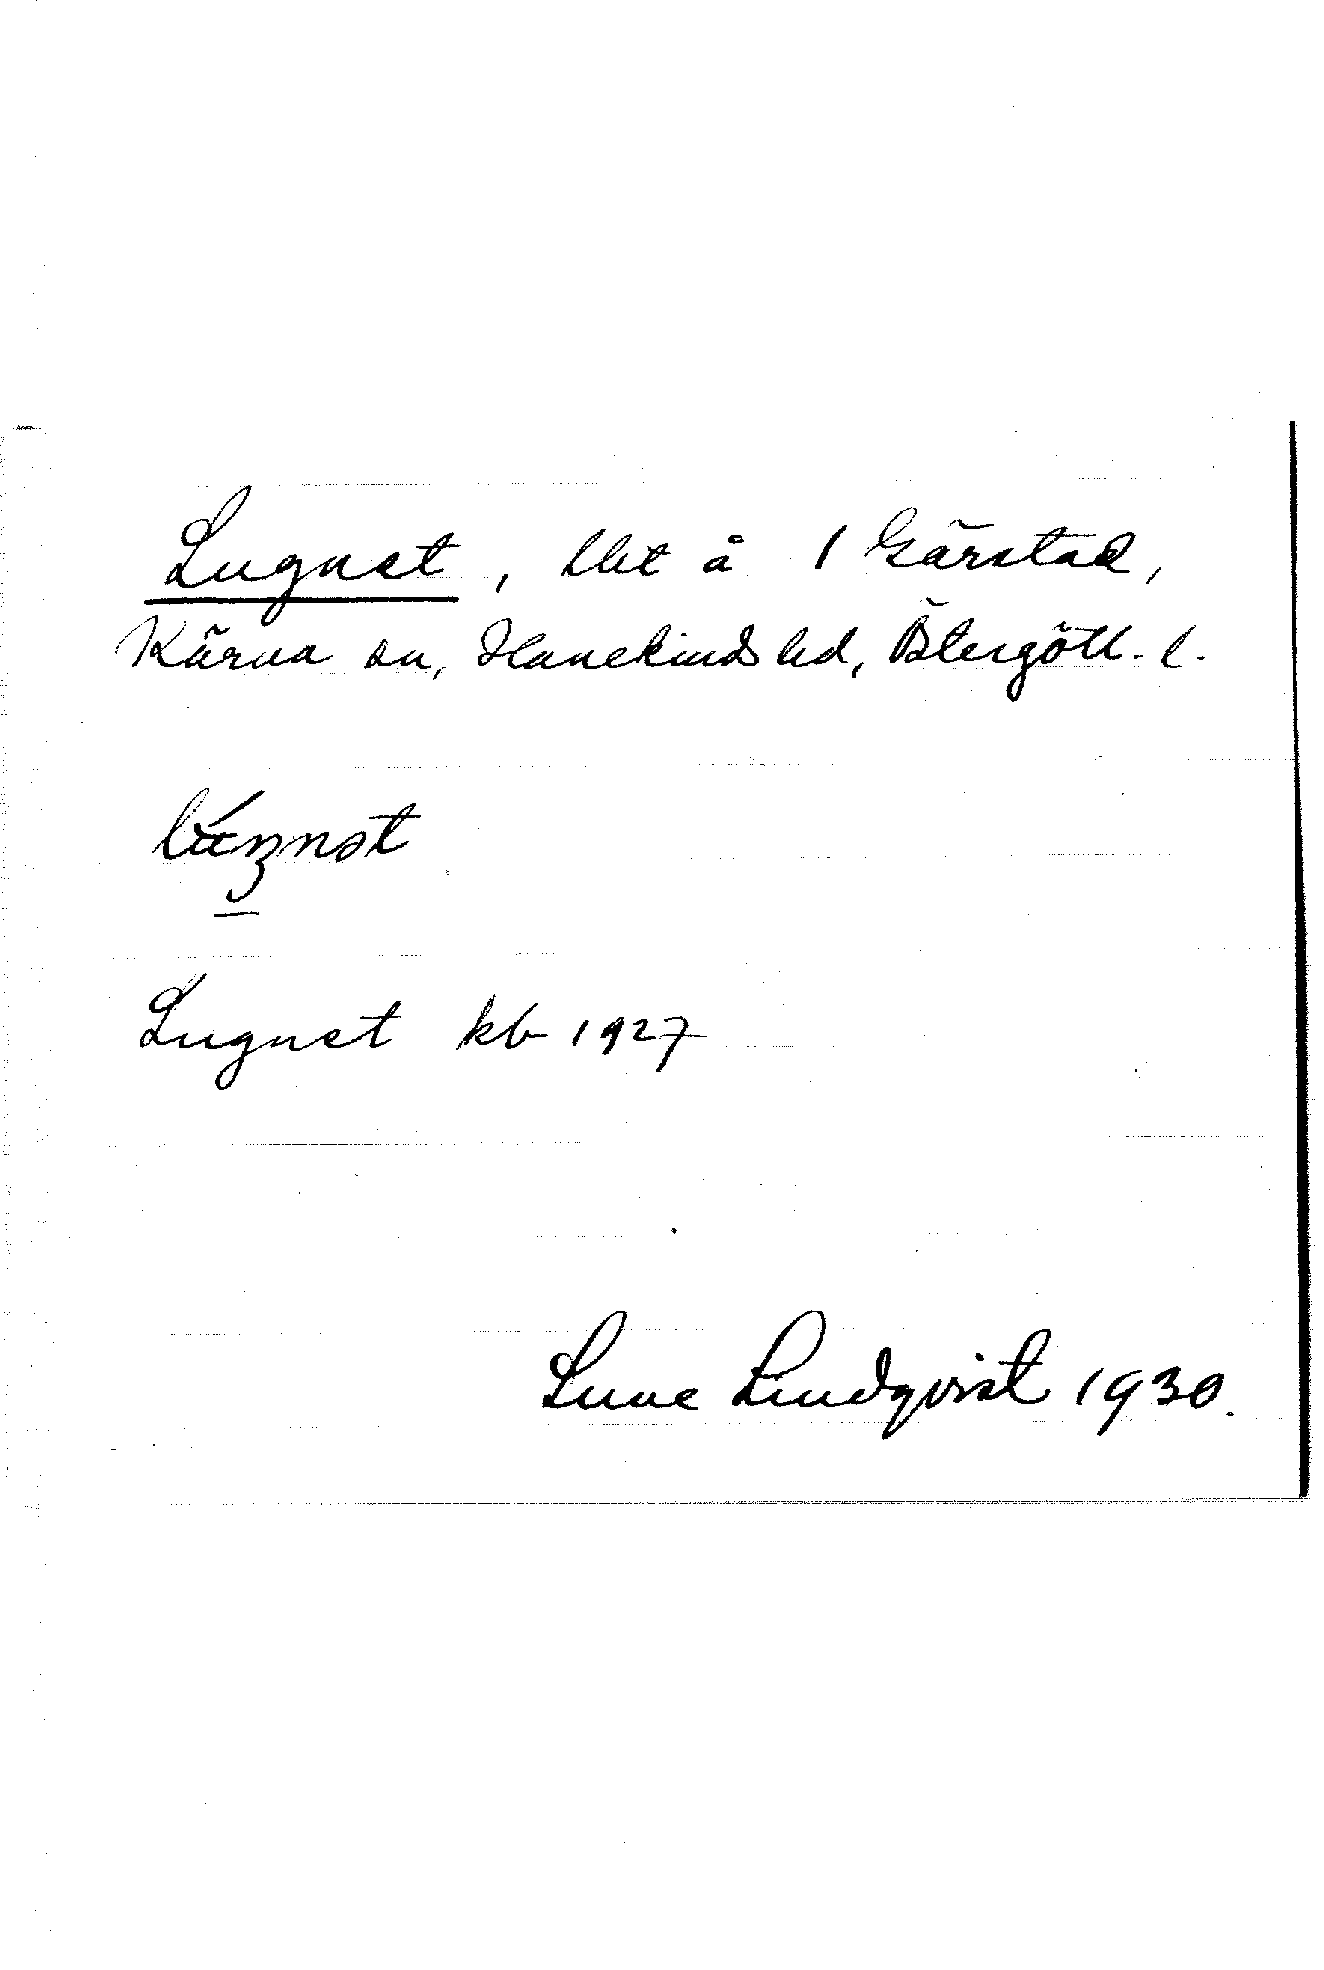 Lugnet, lht å 1 Gärstad,
Kärna sn, Hanekinds hd, Östergötl. l.
lúŋnət
Lugnet kb 1927
Sune Lindqvist 1930.